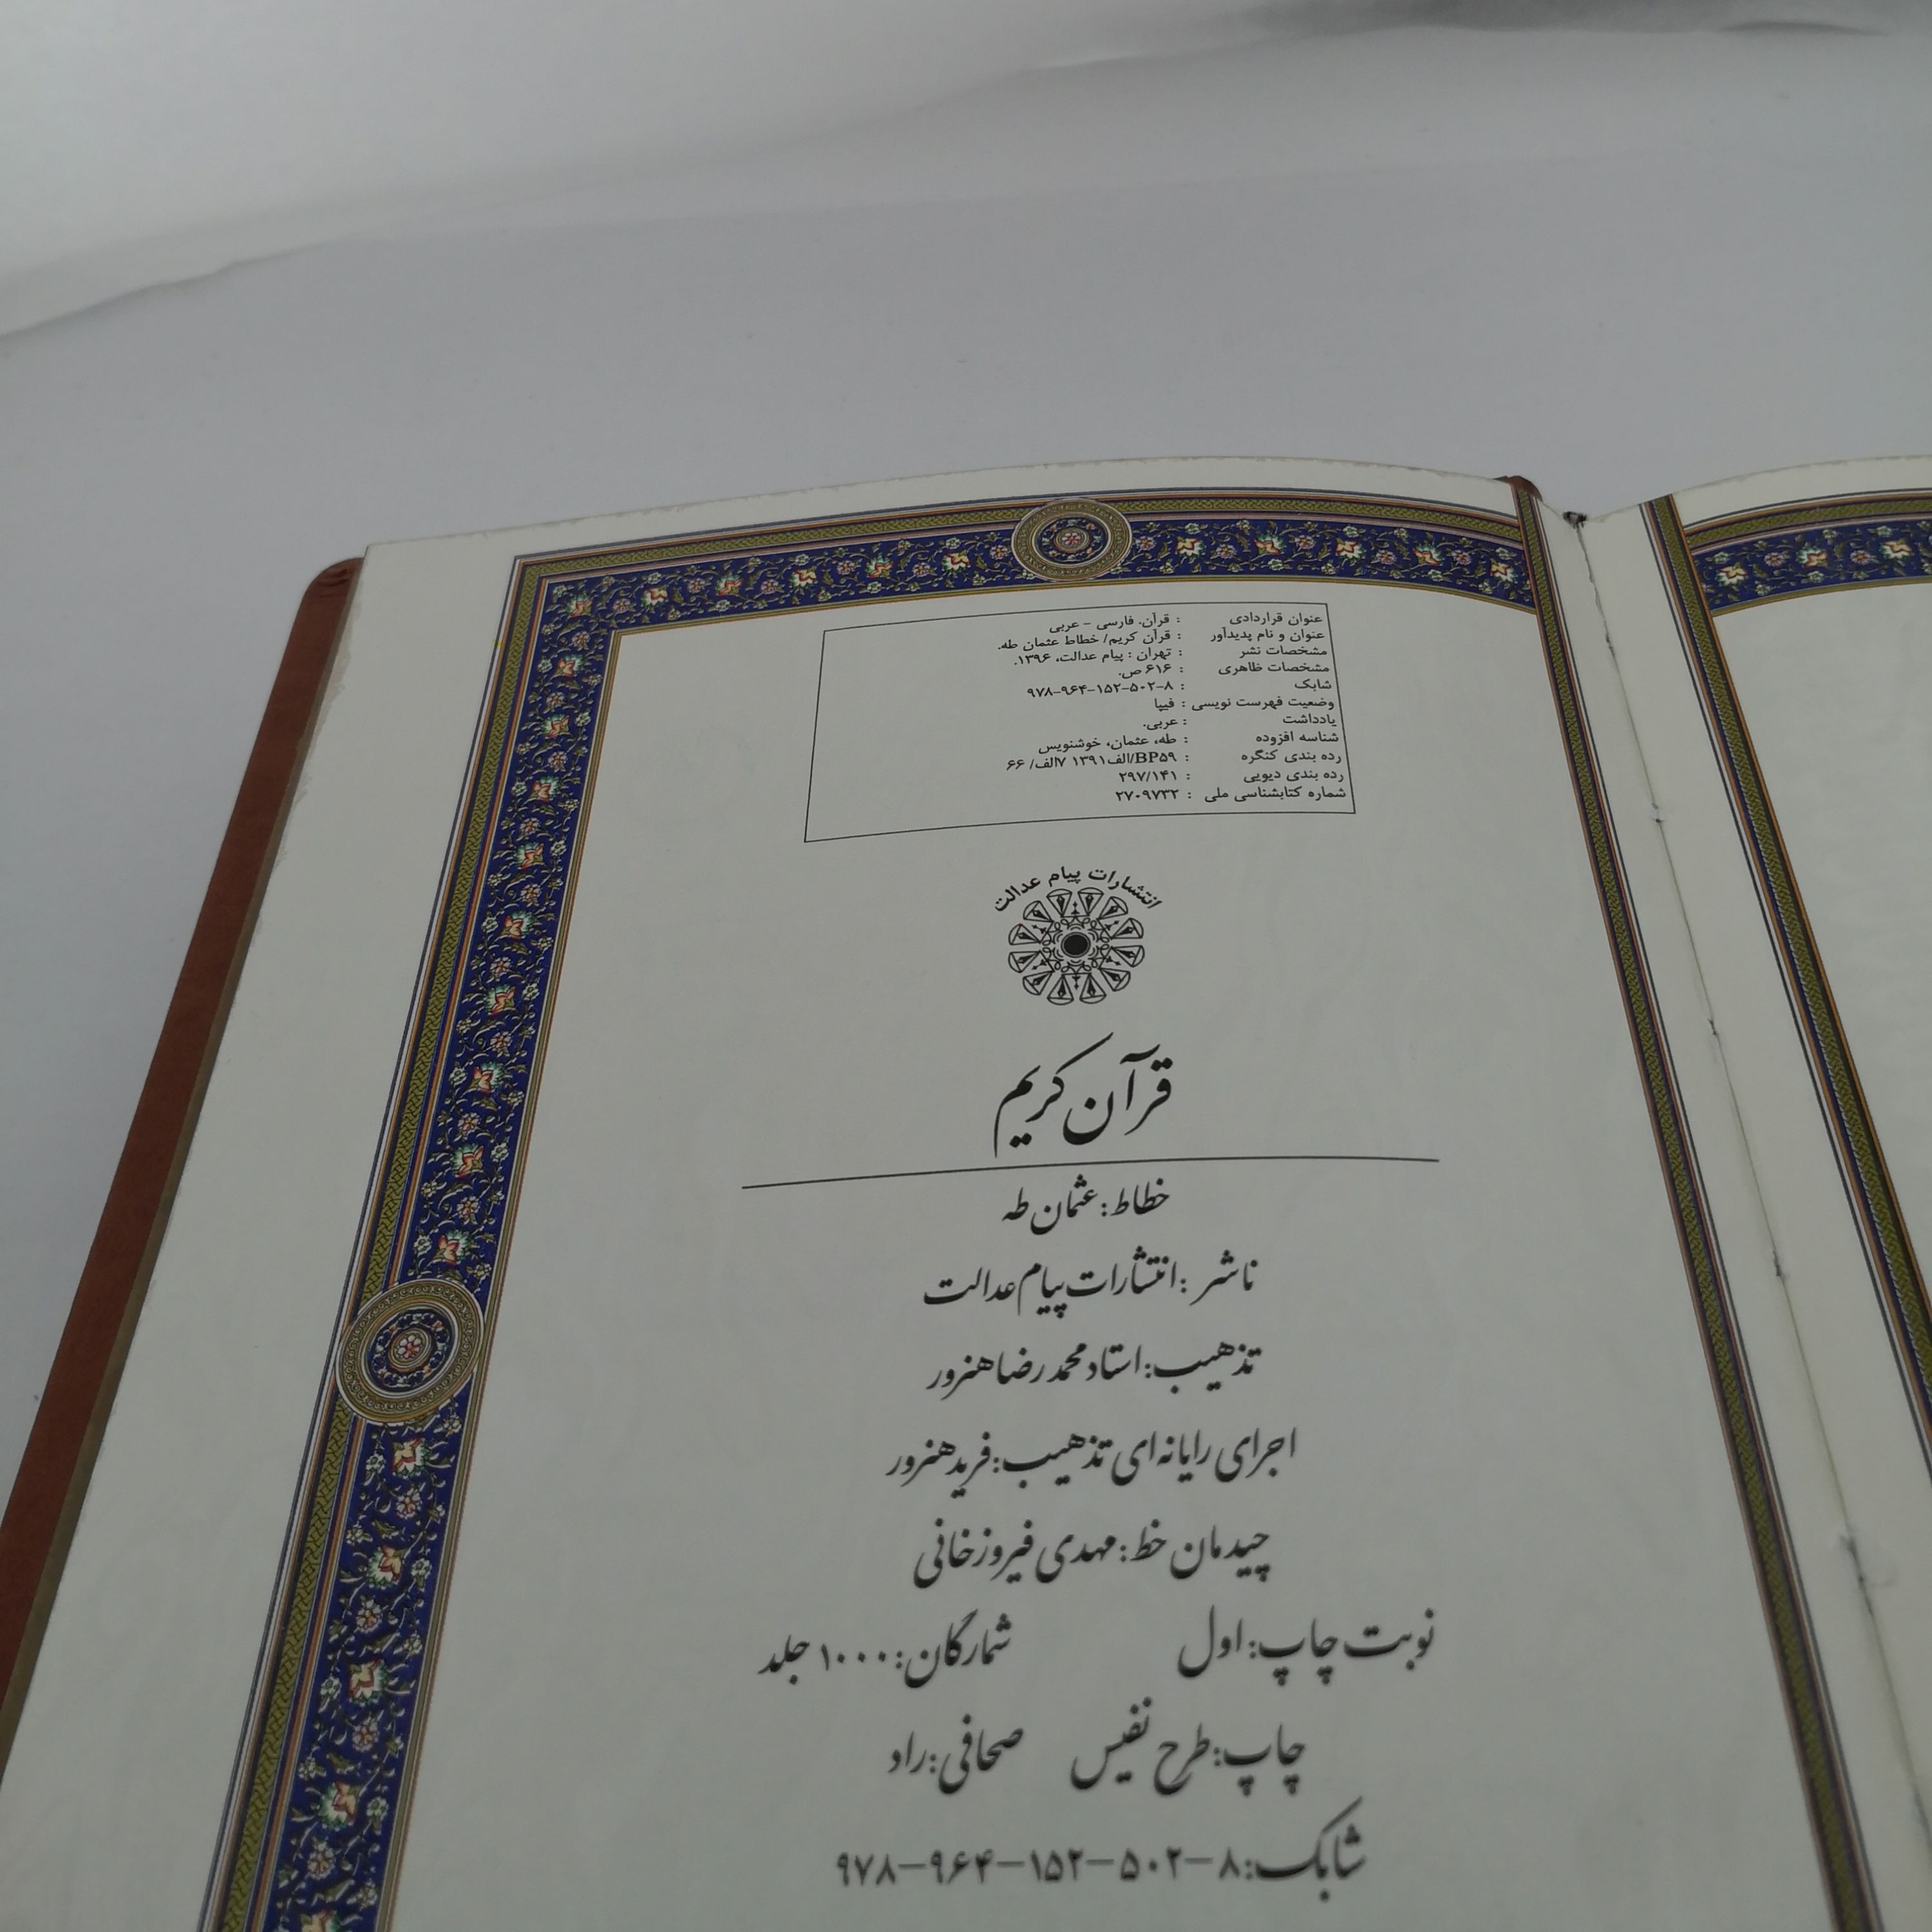 عنوان قراردادی : قرآن. فارسی - عربی
عنوان و نام پدیدآور : قرآن کریم/ خطاط عثمان طه.
مشخصات نشر : تهران : پیام عدالت، ۱۳۹۶.
مشخصات ظاهری : ۶۱۶ ص.
شابک : ۹۷۸-۹۶۴-۱۵۲-۵۰۲-۸
وضعیت فهرست نویسی : فیپا
یادداشت : عربی.
شناسه افزوده : طه، عثمان، خوشنویس
رده بندی کنگره : BP۵۹/الف۱۳۹۱ ۷الف/ ۶۶
رده بندی دیویی : ۲۹۷/۱۴۱
شماره کتابشناسی ملی : ۲۷۰۹۷۳۲
انتشارات پیام عدالت
قرآن کریم
خطاط: عثمان طه
ناشر : انتشارات پیام عدالت
تذهیب: استاد محمد رضا هنرور
اجرای رایانه ای تذهیب: فرید هنرور
چیدمان خط: مهدی فیروزخانی
نوبت چاپ: اول شمارگان: ۱۰۰۰ جلد
چاپ: طرح نفیس صحافی: راد
شابک: ۹۷۸-۹۶۴-۱۵۲-۵۰۲-۸